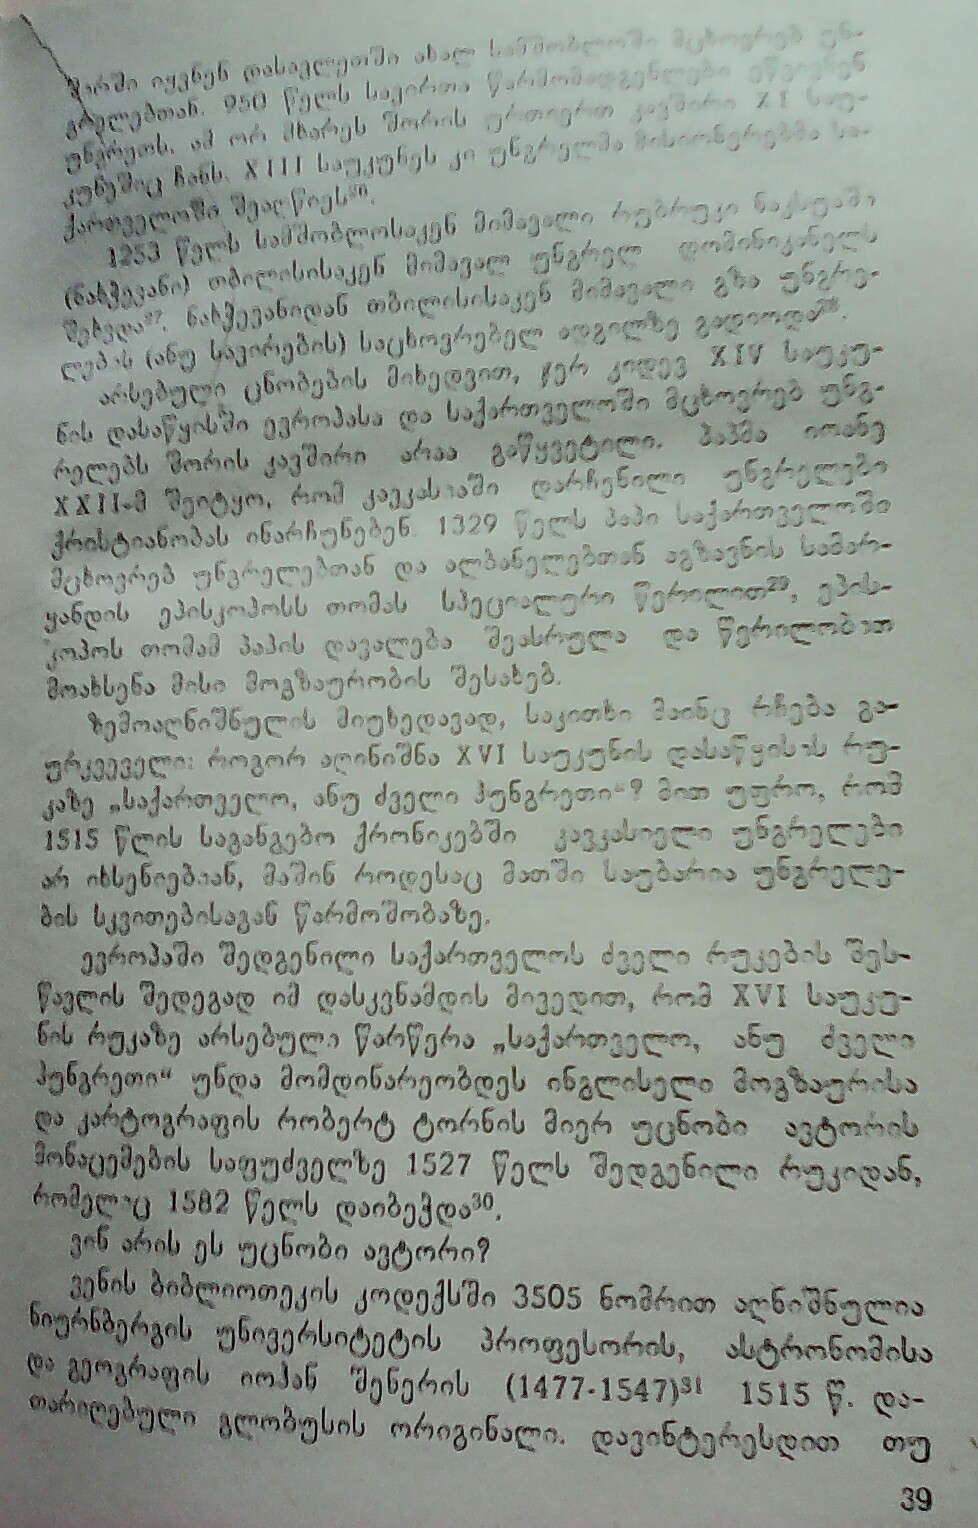 შირში იყვნენ დასავლეთში ახალ სამშობლოში მცხოვრებ უნ-
გრელებთან. 950 წელს სავირთა წარმომადგენლები ეწვივნენ
უნგრეთს. ამ ორ მხარეს შორის ურთიერთ კავშირი XI საუ-
კუნეშიც ჩანს. XIII საუკუნეს კი უნგრელმა მისიონერებმა სა-
ქართველოში შეაღწიეს²⁶.
1253 წელს სამშობლოსაკენ მიმავალი რუბრუკი ნაქსუაში
(ნახჭევანი) თბილისისაკენ მიმავალ უნგრელ დომინიკანელს
შეხვდა²⁷. ნახჭევანიდან თბილისისაკენ მიმავალი გზა უნგრე-
ლების (ანუ სავირების) საცხოვრებელ ადგილზე გადიოდა²⁸.
არსებული ცნობების მიხედვით, ჯერ კიდევ XIV საუკუ-
ნის დასაწყისში ევროპასა და საქართველოში მცხოვრებ უნგ-
რელებს შორის კავშირი არაა გაწყვეტილი. პაპმა იოანე
XXII-მ შეიტყო, რომ კავკასიაში დარჩენილი უნგრელები
ქრისტიანობას ინარჩუნებენ. 1329 წელს პაპი საქართველოში
მცხოვრებ უნგრელებთან და ალბანელებთან აგზავნის სამარ-
ყანდის ეპისკოპოსს თომას სპეციალური წერილით²⁹, ეპის-
კოპოს თომამ პაპის დავალება შეასრულა და წერილობით
მოახსენა მისი მოგზაურობის შესახებ.
ზემოაღნიშნულის მიუხედავად, საკითხი მაინც რჩება გა-
ურკვეველი: როგორ აღინიშნა XVI საუკუნის დასაწყისის რუ-
კაზე „საქართველო, ანუ ძველი ჰუნგრეთი“? მით უფრო, რომ
1515 წლის საგანგებო ქრონიკებში კავკასიელი უნგრელები
არ იხსენიებიან, მაშინ როდესაც მათში საუბარია უნგრელე-
ბის სკვითებისაგან წარმოშობაზე.
ევროპაში შედგენილი საქართველოს ძველი რუკების შეს-
წავლის შედეგად იმ დასკვნამდის მივედით, რომ XVI საუკუ-
ნის რუკაზე არსებული წარწერა „საქართველო, ანუ ძველი
ჰუნგრეთი“ უნდა მომდინარეობდეს ინგლისელი მოგზაურისა
და კარტოგრაფის რობერტ ტორნის მიერ უცნობი ავტორის
მონაცემების საფუძველზე 1527 წელს შედგენილი რუკიდან,
რომელიც 1582 წელს დაიბეჭდა³⁰.
ვინ არის ეს უცნობი ავტორი?
ვენის ბიბლიოთეკის კოდექსში 3505 ნომრით აღნიშნულია
ნიურნბერგის უნივერსიტეტის პროფესორის, ასტრონომისა
და გეოგრაფის იოჰან შენერის (1477-1547)³¹ 1515 წ. და-
თარიღებული გლობუსის ორიგინალი. დავინტერესდით თუ
39